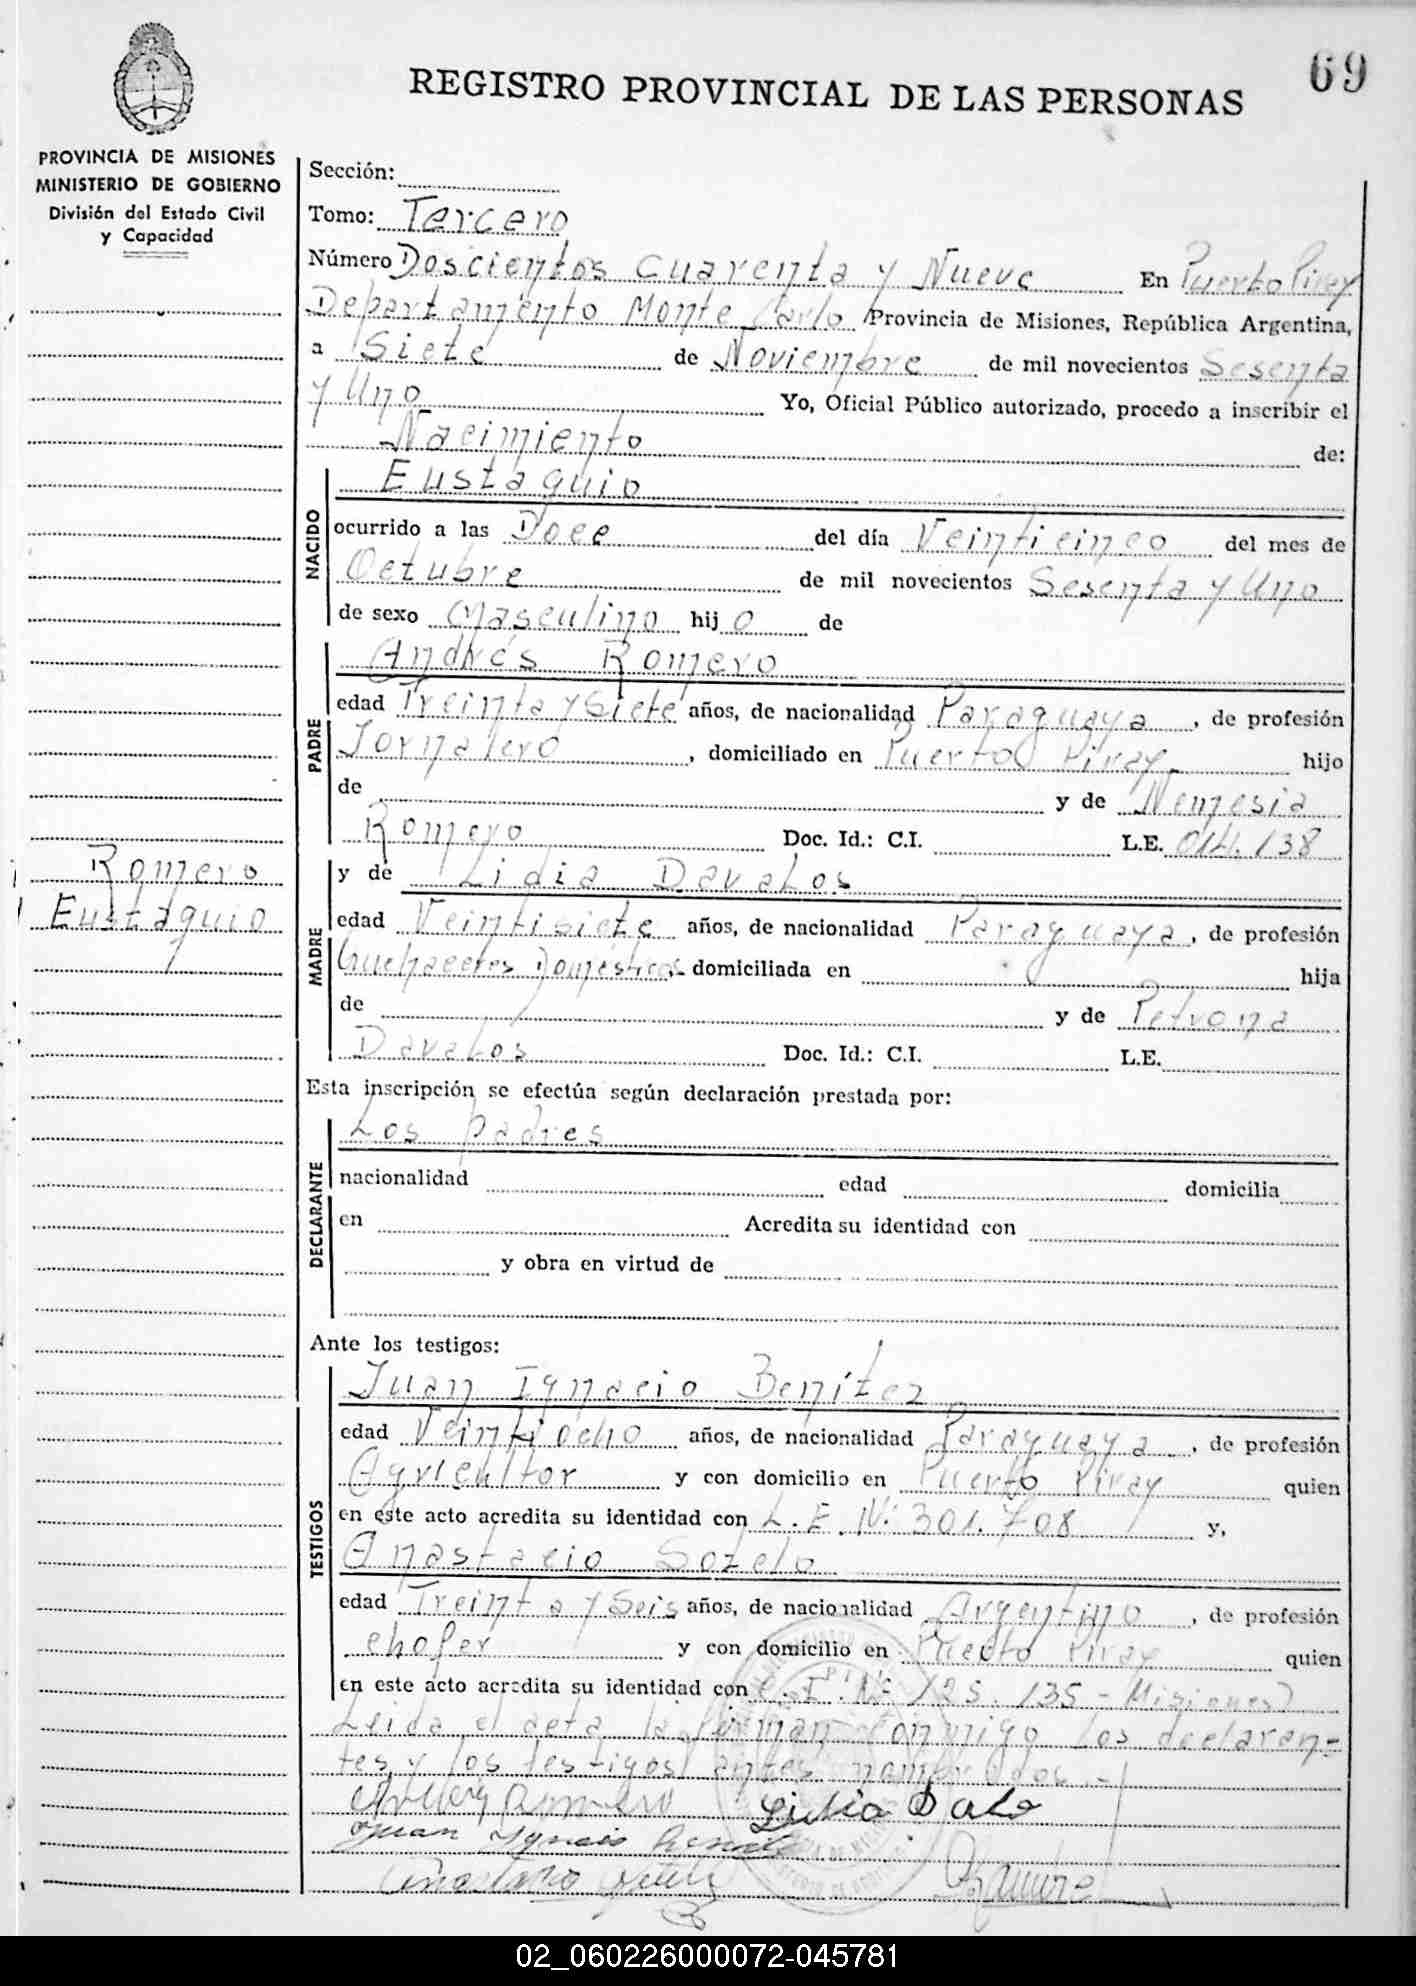 69
REGISTRO PROVINCIAL DE LAS PERSONAS
PROVINCIA DE MISIONES
MINISTERIO DE GOBIERNO
División del Estado Civil
y Capacidad
Sección:
Tomo: Tercero
Número Doscientos Cuarenta y Nueve En Puerto Piray
Departamento Monte Carlo Provincia de Misiones, República Argentina,
a Siete de Noviembre de mil novecientos Sesenta
y Uno Yo, Oficial Público autorizado, procedo a inscribir el
Nacimiento de:
NACIDO
Eustaquio
ocurrido a las Doce del día Veinticinco del mes de
Octubre de mil novecientos Sesenta y Uno
de sexo Masculino hijo de
PADRE
Andrés Romero
edad Treinta y Siete años, de nacionalidad Paraguaya, de profesión
Jornalero, domiciliado en Puerto Piray hijo
de y de Nemesia
Romero Doc. Id.: C.I. L.E. 014.138
Romero
Eustaquio
MADRE
y de Lidia Davalos
edad Veintisiete años, de nacionalidad Paraguaya, de profesión
Quehaceres Domesticos, domiciliada en hija
de y de Petrona
Davalos Doc. Id.: C.I. L.E.
Esta inscripción se efectúa según declaración prestada por:
DECLARANTE
Los padres
nacionalidad edad domicilia
en Acredita su identidad con
y obra en virtud de
Ante los testigos:
TESTIGOS
Juan Ignacio Benítez
edad Veintiocho años, de nacionalidad Paraguaya, de profesión
Agricultor y con domicilio en Puerto Piray quien
en este acto acredita su identidad con L.E. Nº 301.708 y,
Anastacio Sotelo
edad Treinta y Seis años, de nacionalidad Argentino, de profesión
chofer y con domicilio en Puerto Piray quien
en este acto acredita su identidad con C.I. Nº 125.135 - Misiones)
Leida el acta la firman conmigo los declaran-
tes y los testigos antes nombrados.-
Romero Lidia Dalo
Juan Ygnacio
02_060226000072-045781